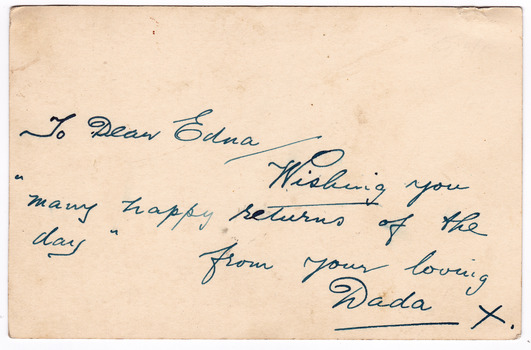 To Dear Edna
Wishing you
"many happy returns of the
day"
from your loving
Dada X.